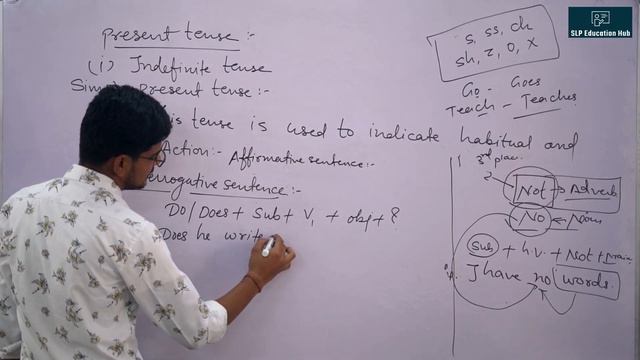 present tense :-
(i) Indefinite tense
Simple present tense :-
is tense is used to indicate habitual and
Action :- Affirmative sentence :-
rrogative sentence :-
Do/Does + Sub + V₁ + obj + ?
Does he writ
s, ss, ch
sh, z, o, x
Go - Goes
Teach - Teaches
1 3rd place
2
Not → Adverb
No ← Noun
Sub + h.v. + Not + main
I have no words.
SLP Education Hub